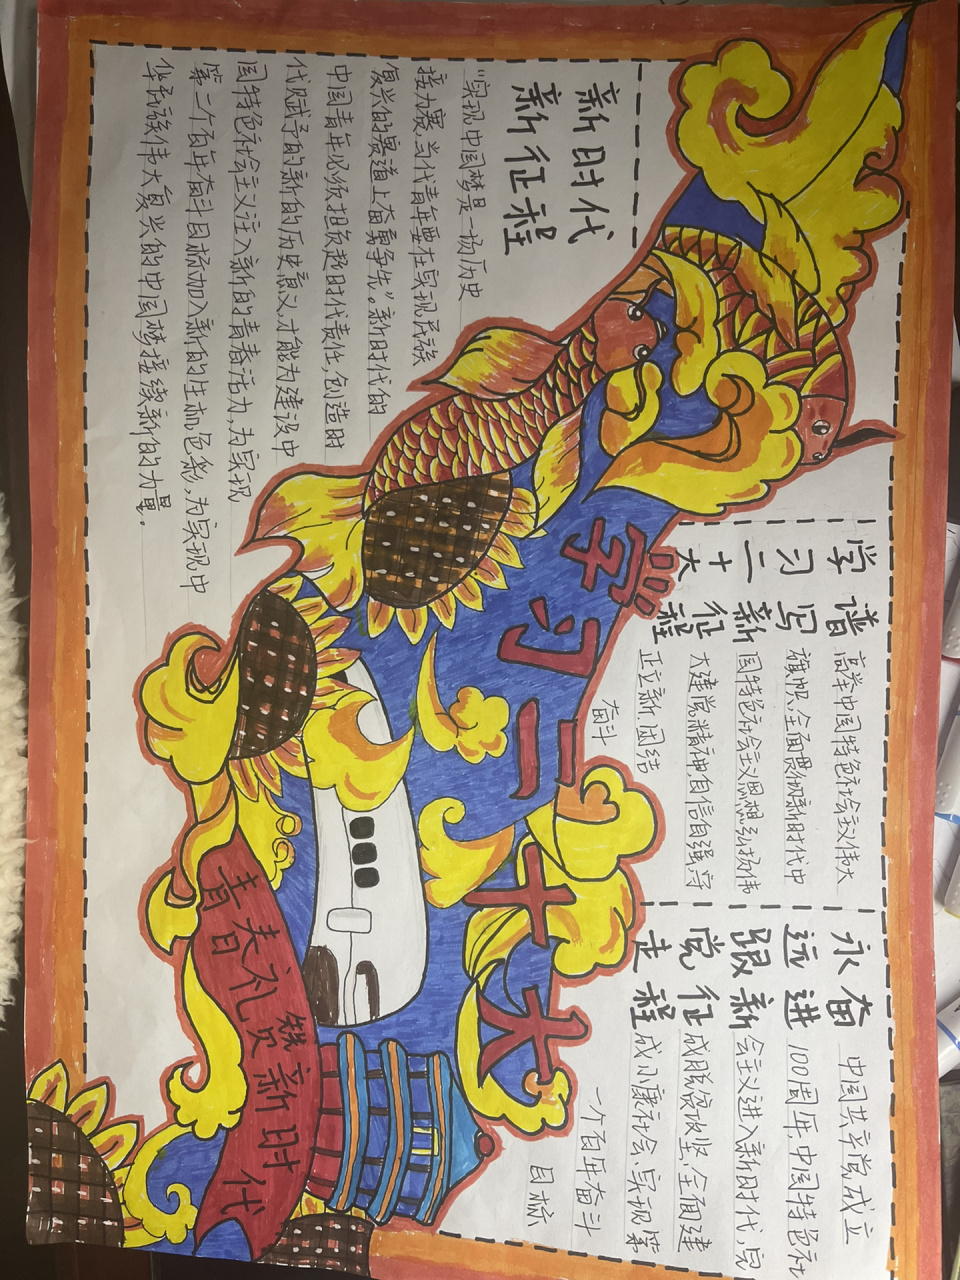 学习二十大
谱写新征程
高举中国特色社会主义伟大
旗帜,全面贯彻新时代中
国特色社会主义思想,弘扬伟
大建党精神,自信自强,守
正立新,团结
奋斗
永远跟党走
奋进新征程
中国共产党成立
100周年,中国特色社
会主义进入新时代,完
成脱贫攻坚,全面建
成小康社会、实现第
一个百年奋斗
目标
学习二十大
新时代
新征程
“实现中国梦是一场历史
接力赛,当代青年要在实现民族
复兴的赛道上奋勇争先”。新时代的
中国青年必须担负起时代责任,创造时
代赋予的新的历史意义,才能为建设中
国特色社会主义注入新的青春活力,为实现
第二个百年奋斗目标加入新的生命色彩,为实现中
华民族伟大复兴的中国梦接续新的力量。
青春礼赞新时代